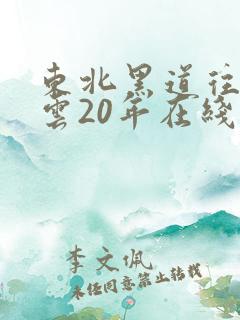 東北黑道往
雲20年在綫
李文佩
未經同意禁止轉載